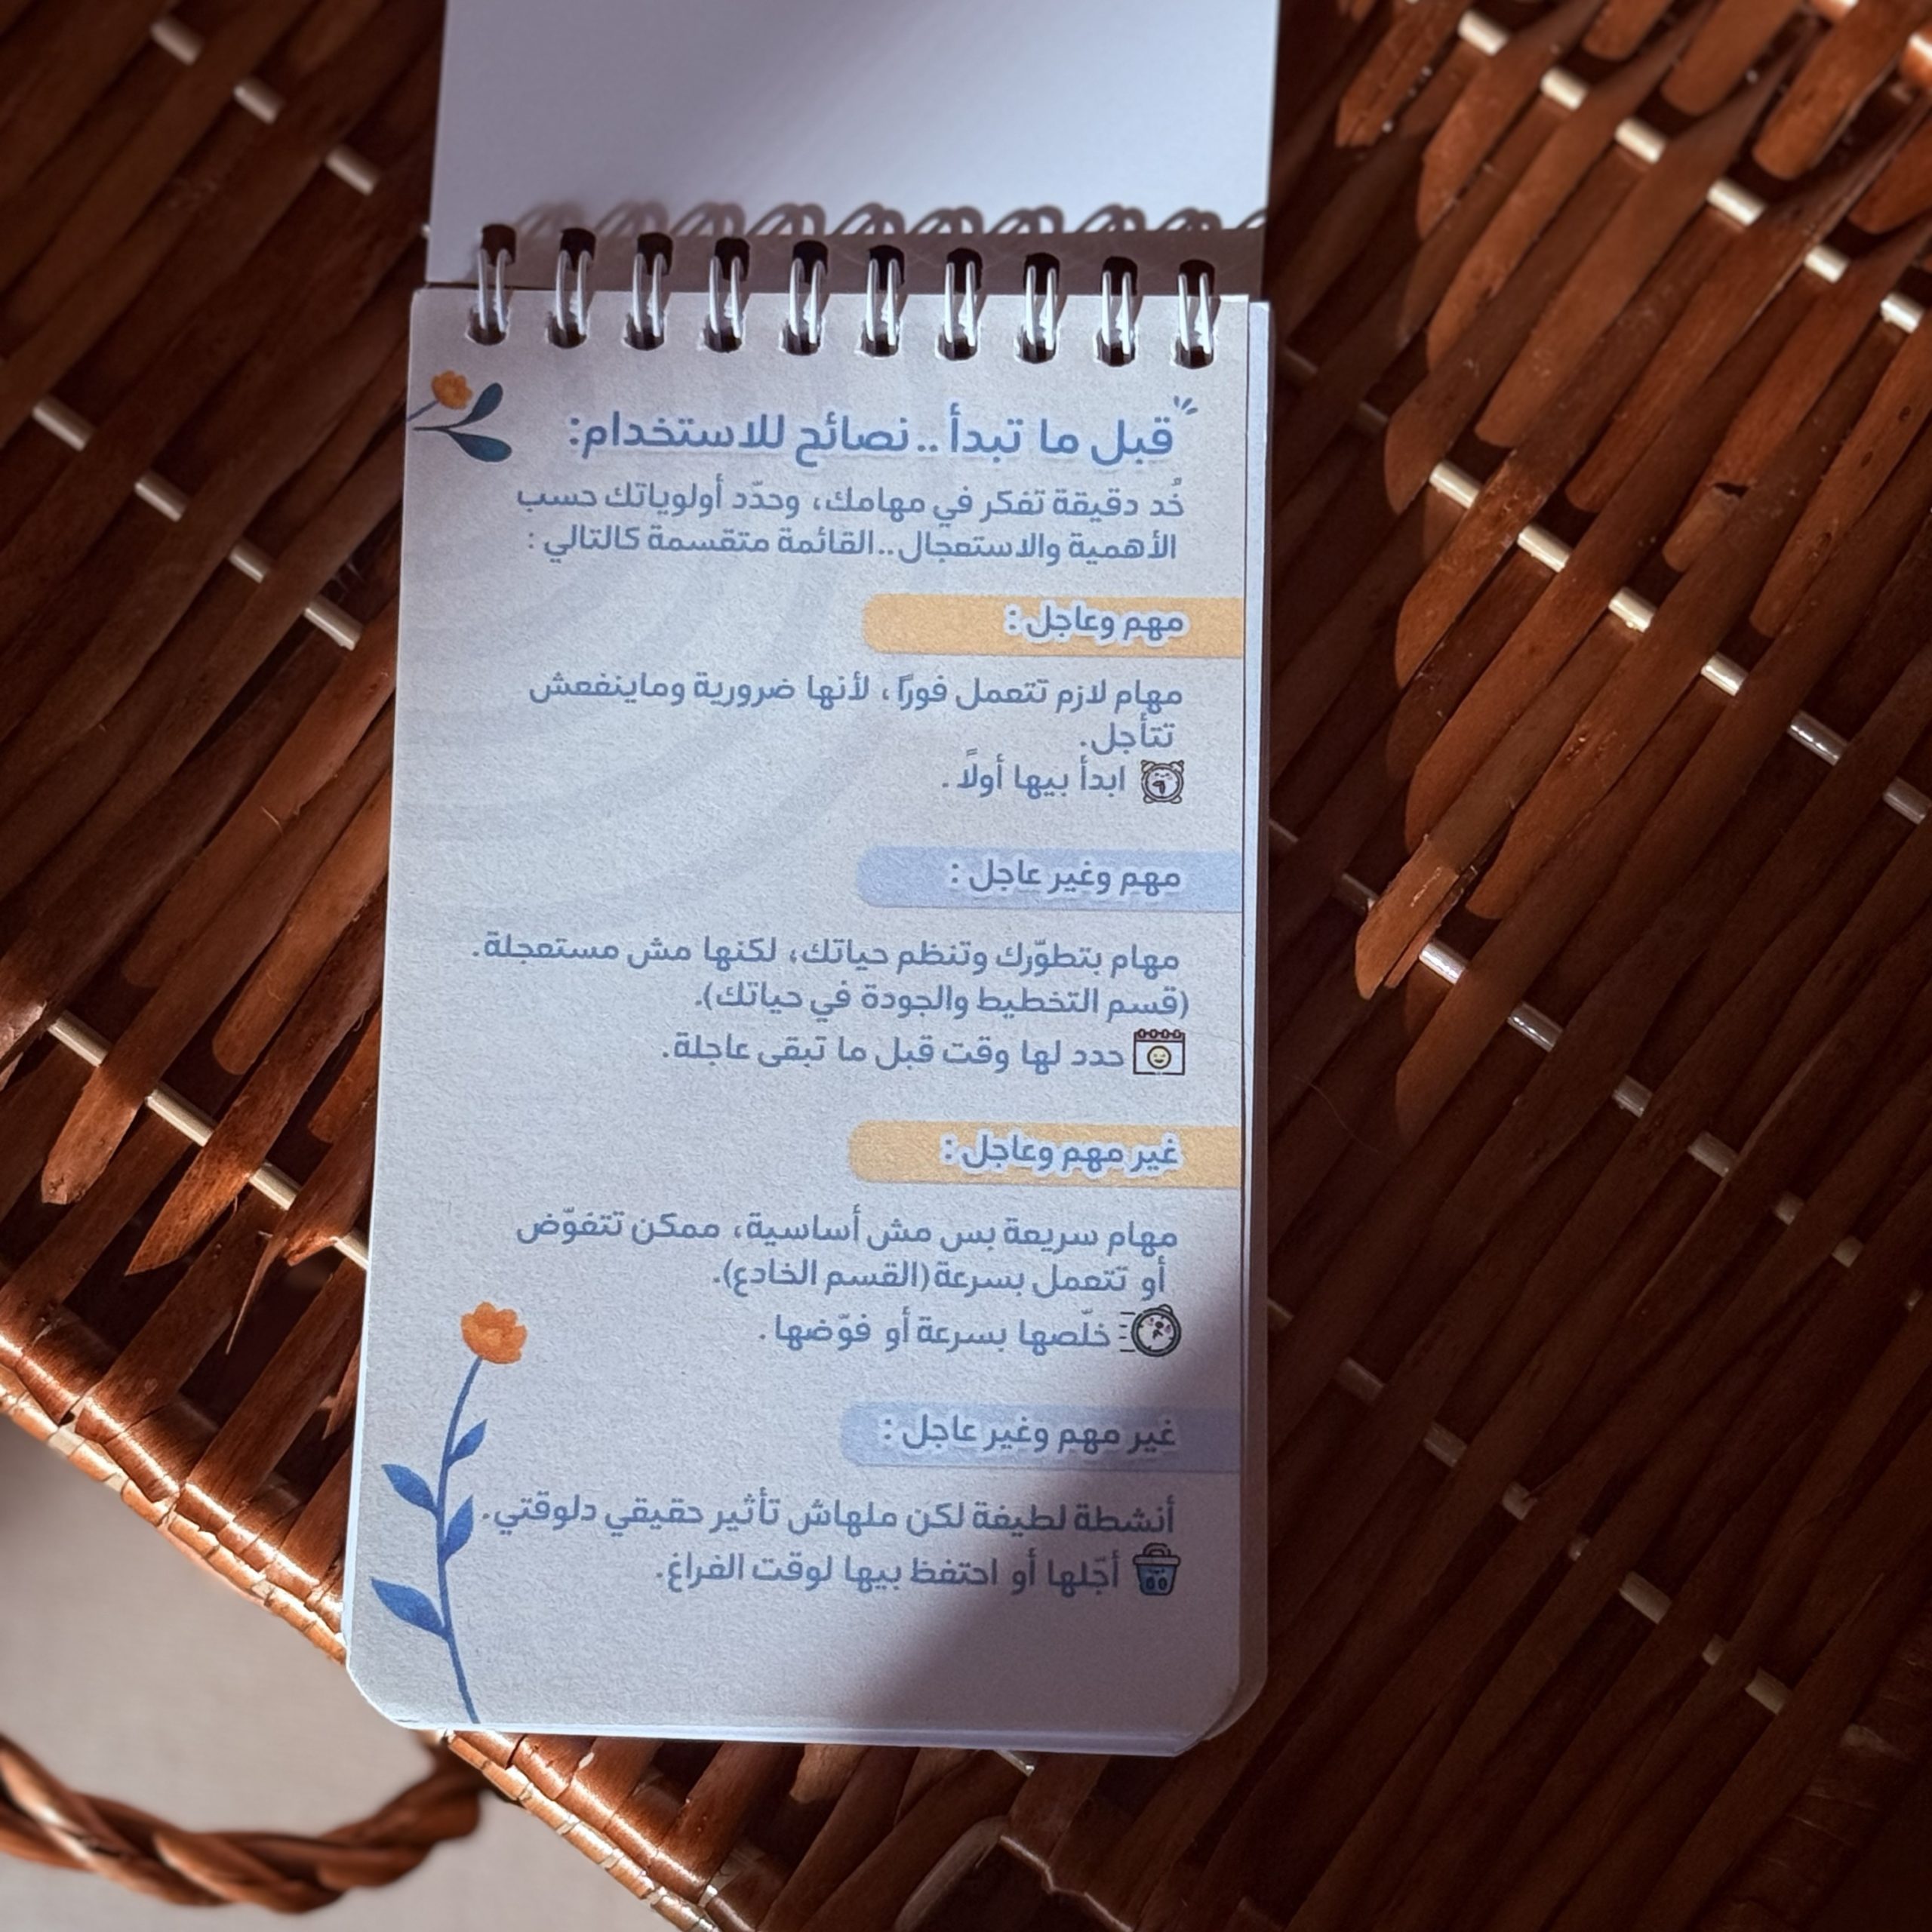 قبل ما تبدأ .. نصائح للاستخدام:
خُد دقيقة تفكر في مهامك، وحدّد أولوياتك حسب
الأهمية والاستعجال..القائمة متقسمة كالتالي :
مهم وعاجل :
مهام لازم تتعمل فورًا، لأنها ضرورية وماينفعش
تتأجل.
ابدأ بيها أولًا .
مهم وغير عاجل :
مهام بتطوّرك وتنظم حياتك، لكنها مش مستعجلة.
(قسم التخطيط والجودة في حياتك).
حدد لها وقت قبل ما تبقى عاجلة.
غير مهم وعاجل :
مهام سريعة بس مش أساسية، ممكن تتفوّض
أو تتعمل بسرعة(القسم الخادع).
خلّصها بسرعة أو فوّضها .
غير مهم وغير عاجل :
أنشطة لطيفة لكن ملهاش تأثير حقيقي دلوقتي.
أجّلها أو احتفظ بيها لوقت الفراغ.